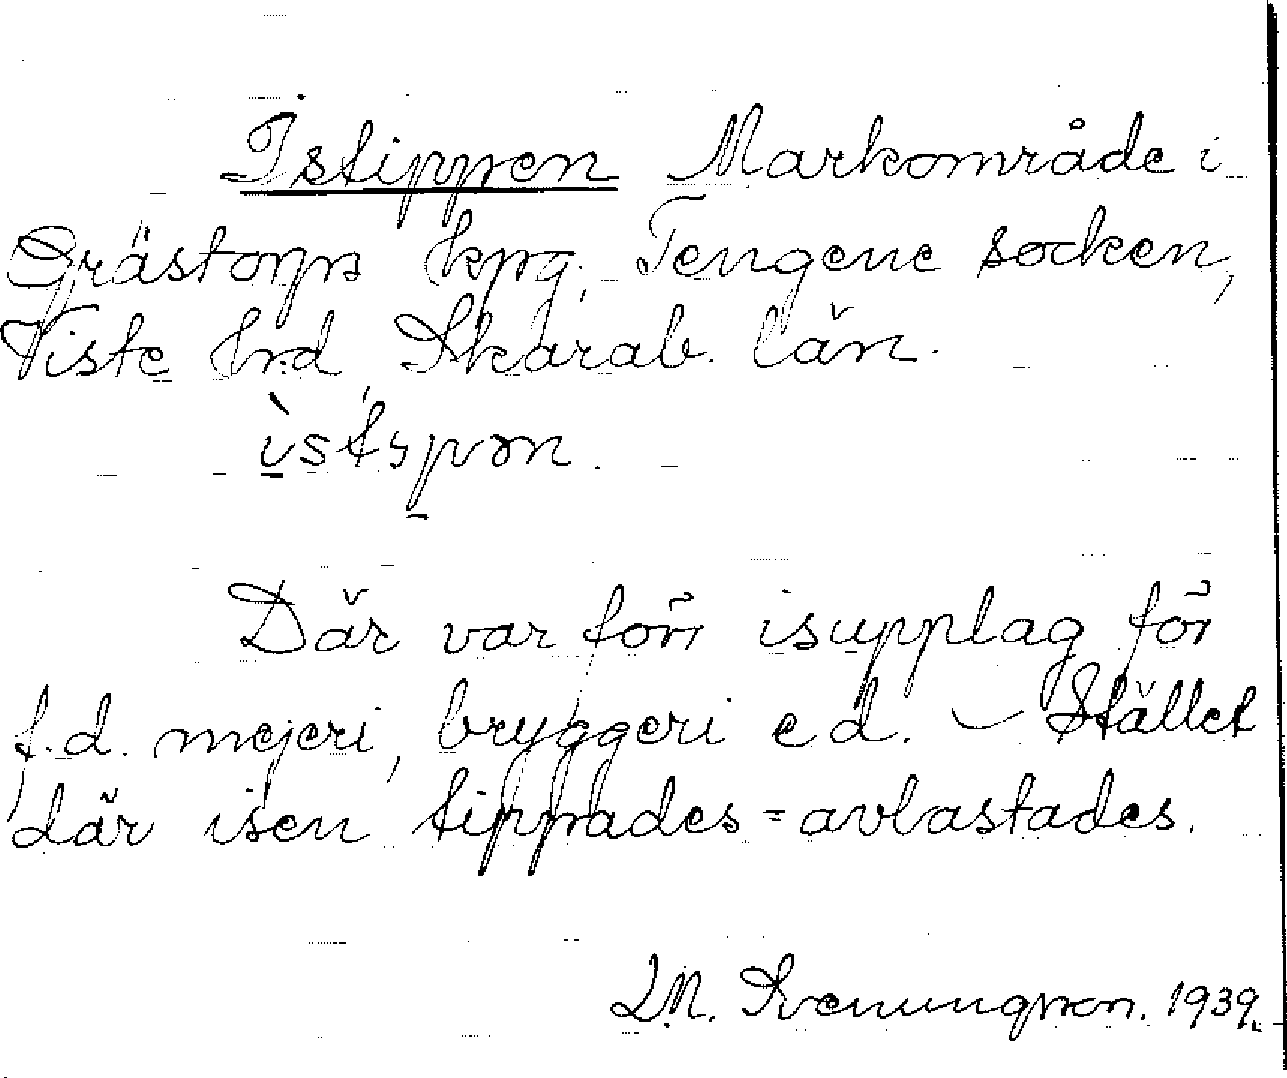 Istippen Markområde i
Grästorps kpg, Tengene socken,
Viste hrd, Skarab. län.
Där var förr isupplag för
f.d. mejeri, bryggeri e d. – Stället
där isen tippades = avlastades.
Svenungsson. 1939.